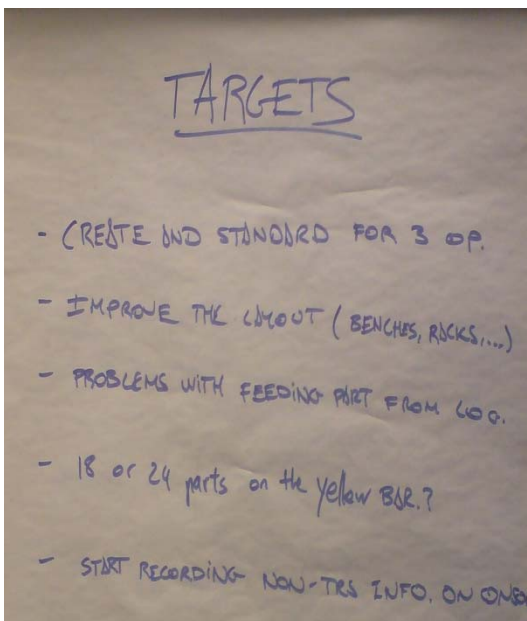 TARGETS
- CREATE AND STANDARD FOR 3 OP.
- IMPROVE THE LAYOUT (BENCHES, RACKS,...)
- PROBLEMS WITH FEEDING PART FROM LOG.
- 18 or 24 parts on the yellow BAR.?
- START RECORDING NON-TRS INFO. ON